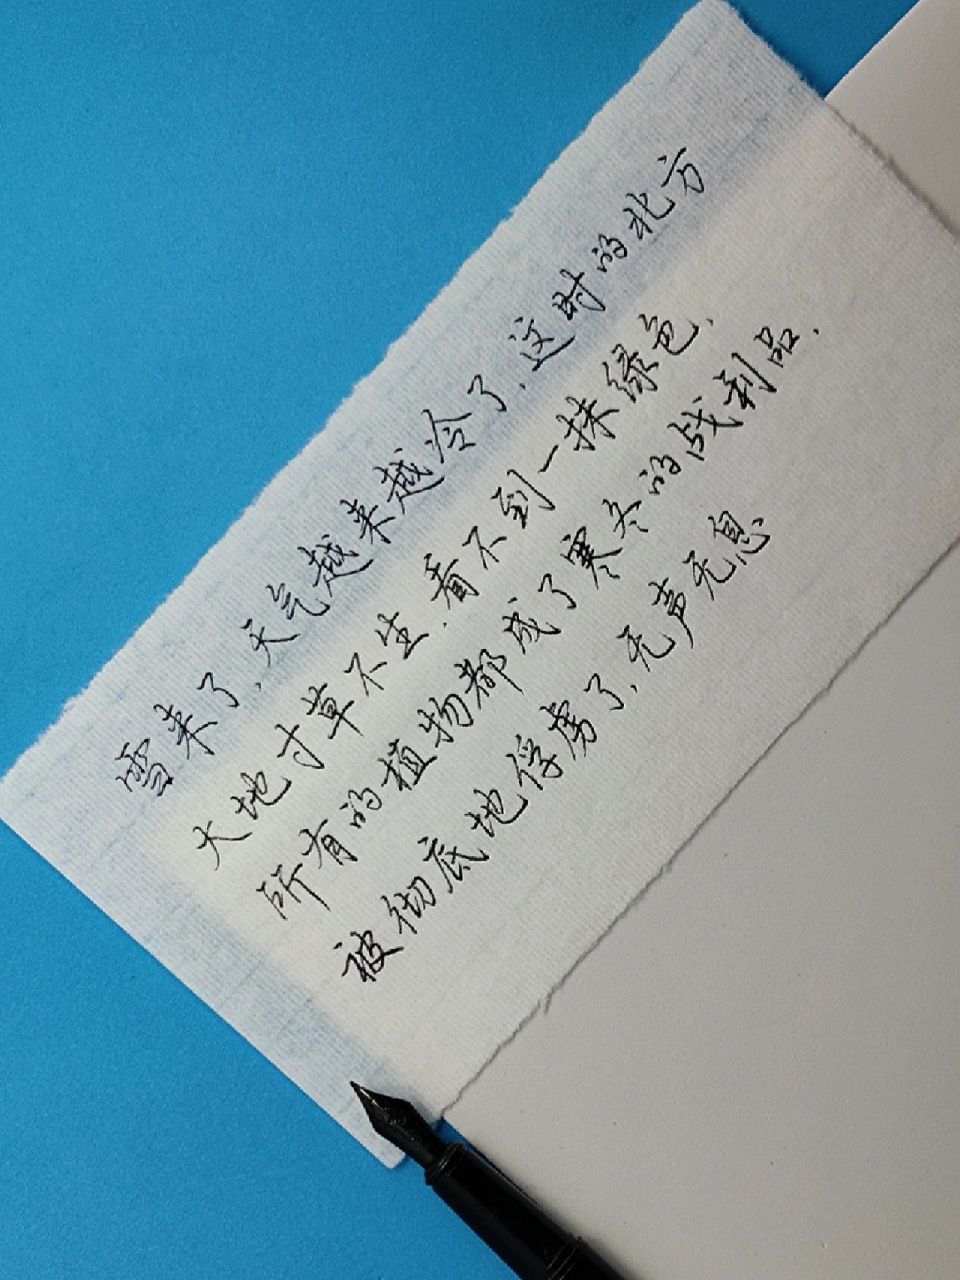 雪来了,天气越来越冷了,这时的北方
大地寸草不生,看不到一抹绿色,
所有的植物都成了寒冬的战利品,
被彻底地俘虏了,无声无息